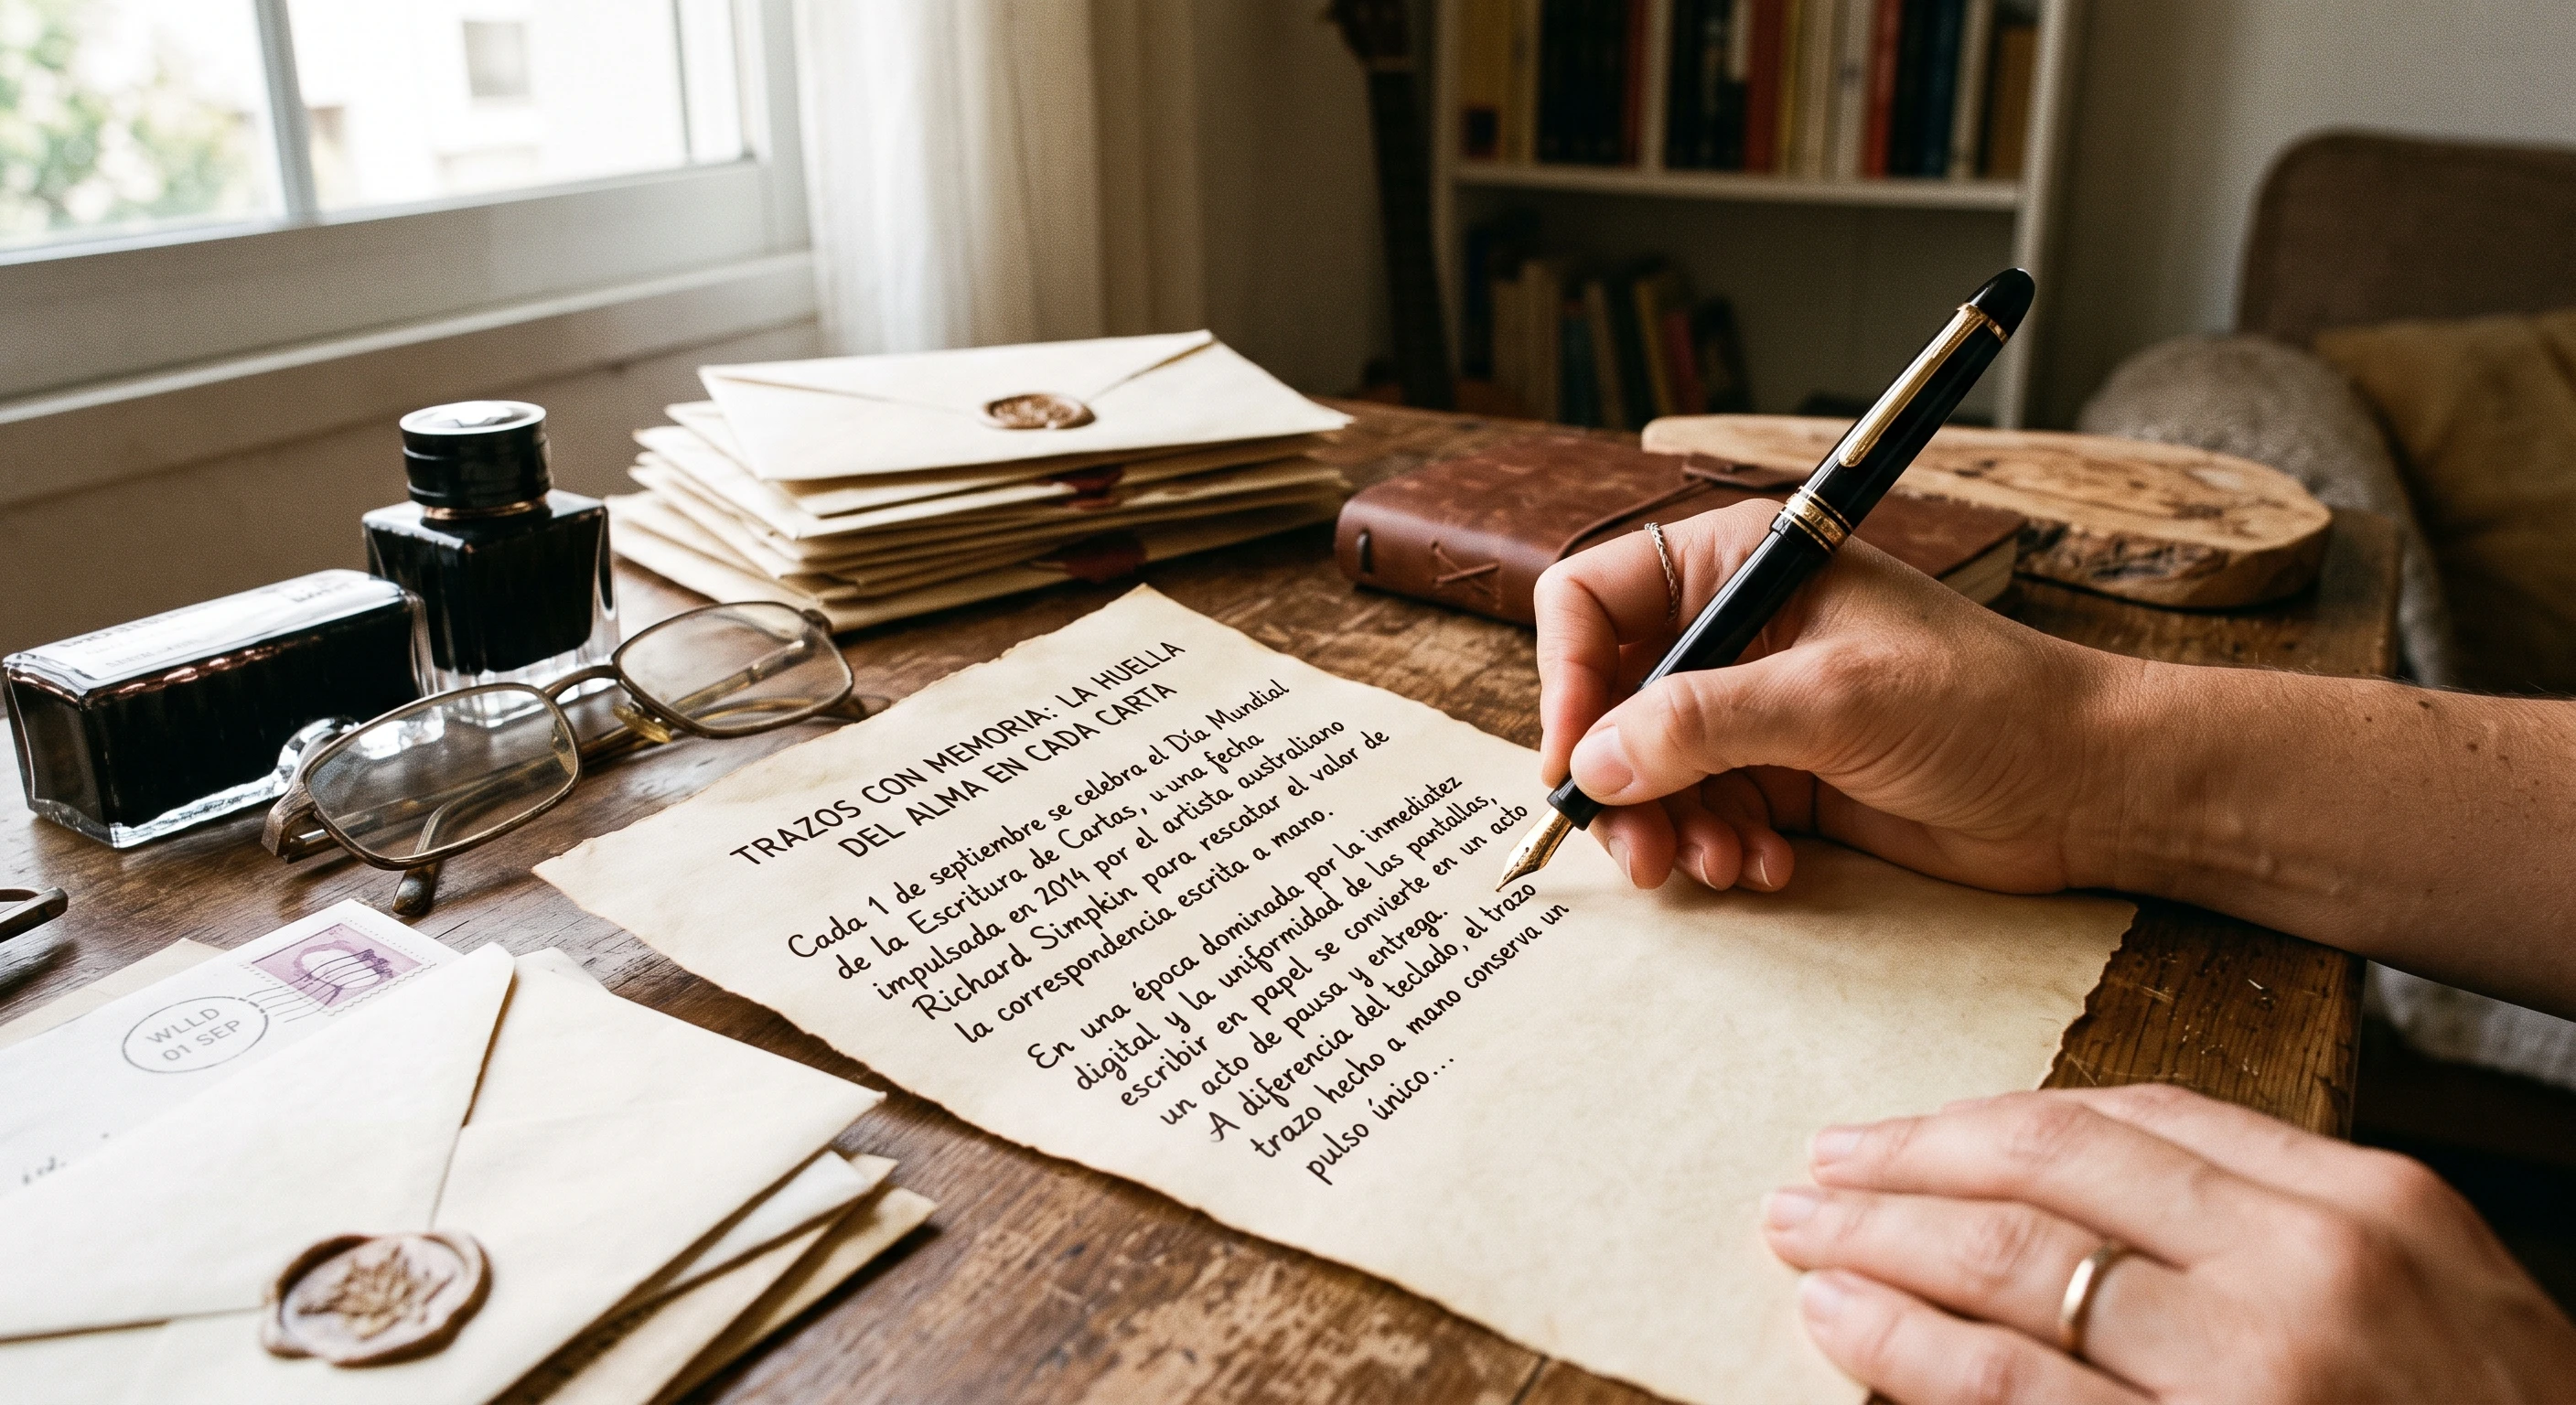 TRAZOS CON MEMORIA: LA HUELLA
DEL ALMA EN CADA CARTA
Cada 1 de septiembre se celebra el Día Mundial
de la Escritura de Cartas, u una fecha
impulsada en 2014 por el artista australiano
Richard Simpkin para rescatar el valor de
la correspondencia escrita a mano.
En una época dominada por la inmediatez
digital y la uniformidad de las pantallas,
escribir en papel se convierte en un acto
un acto de pausa y entrega.
A diferencia del teclado, el trazo
trazo hecho a mano conserva un
pulso único...
WLLD
01 SEP